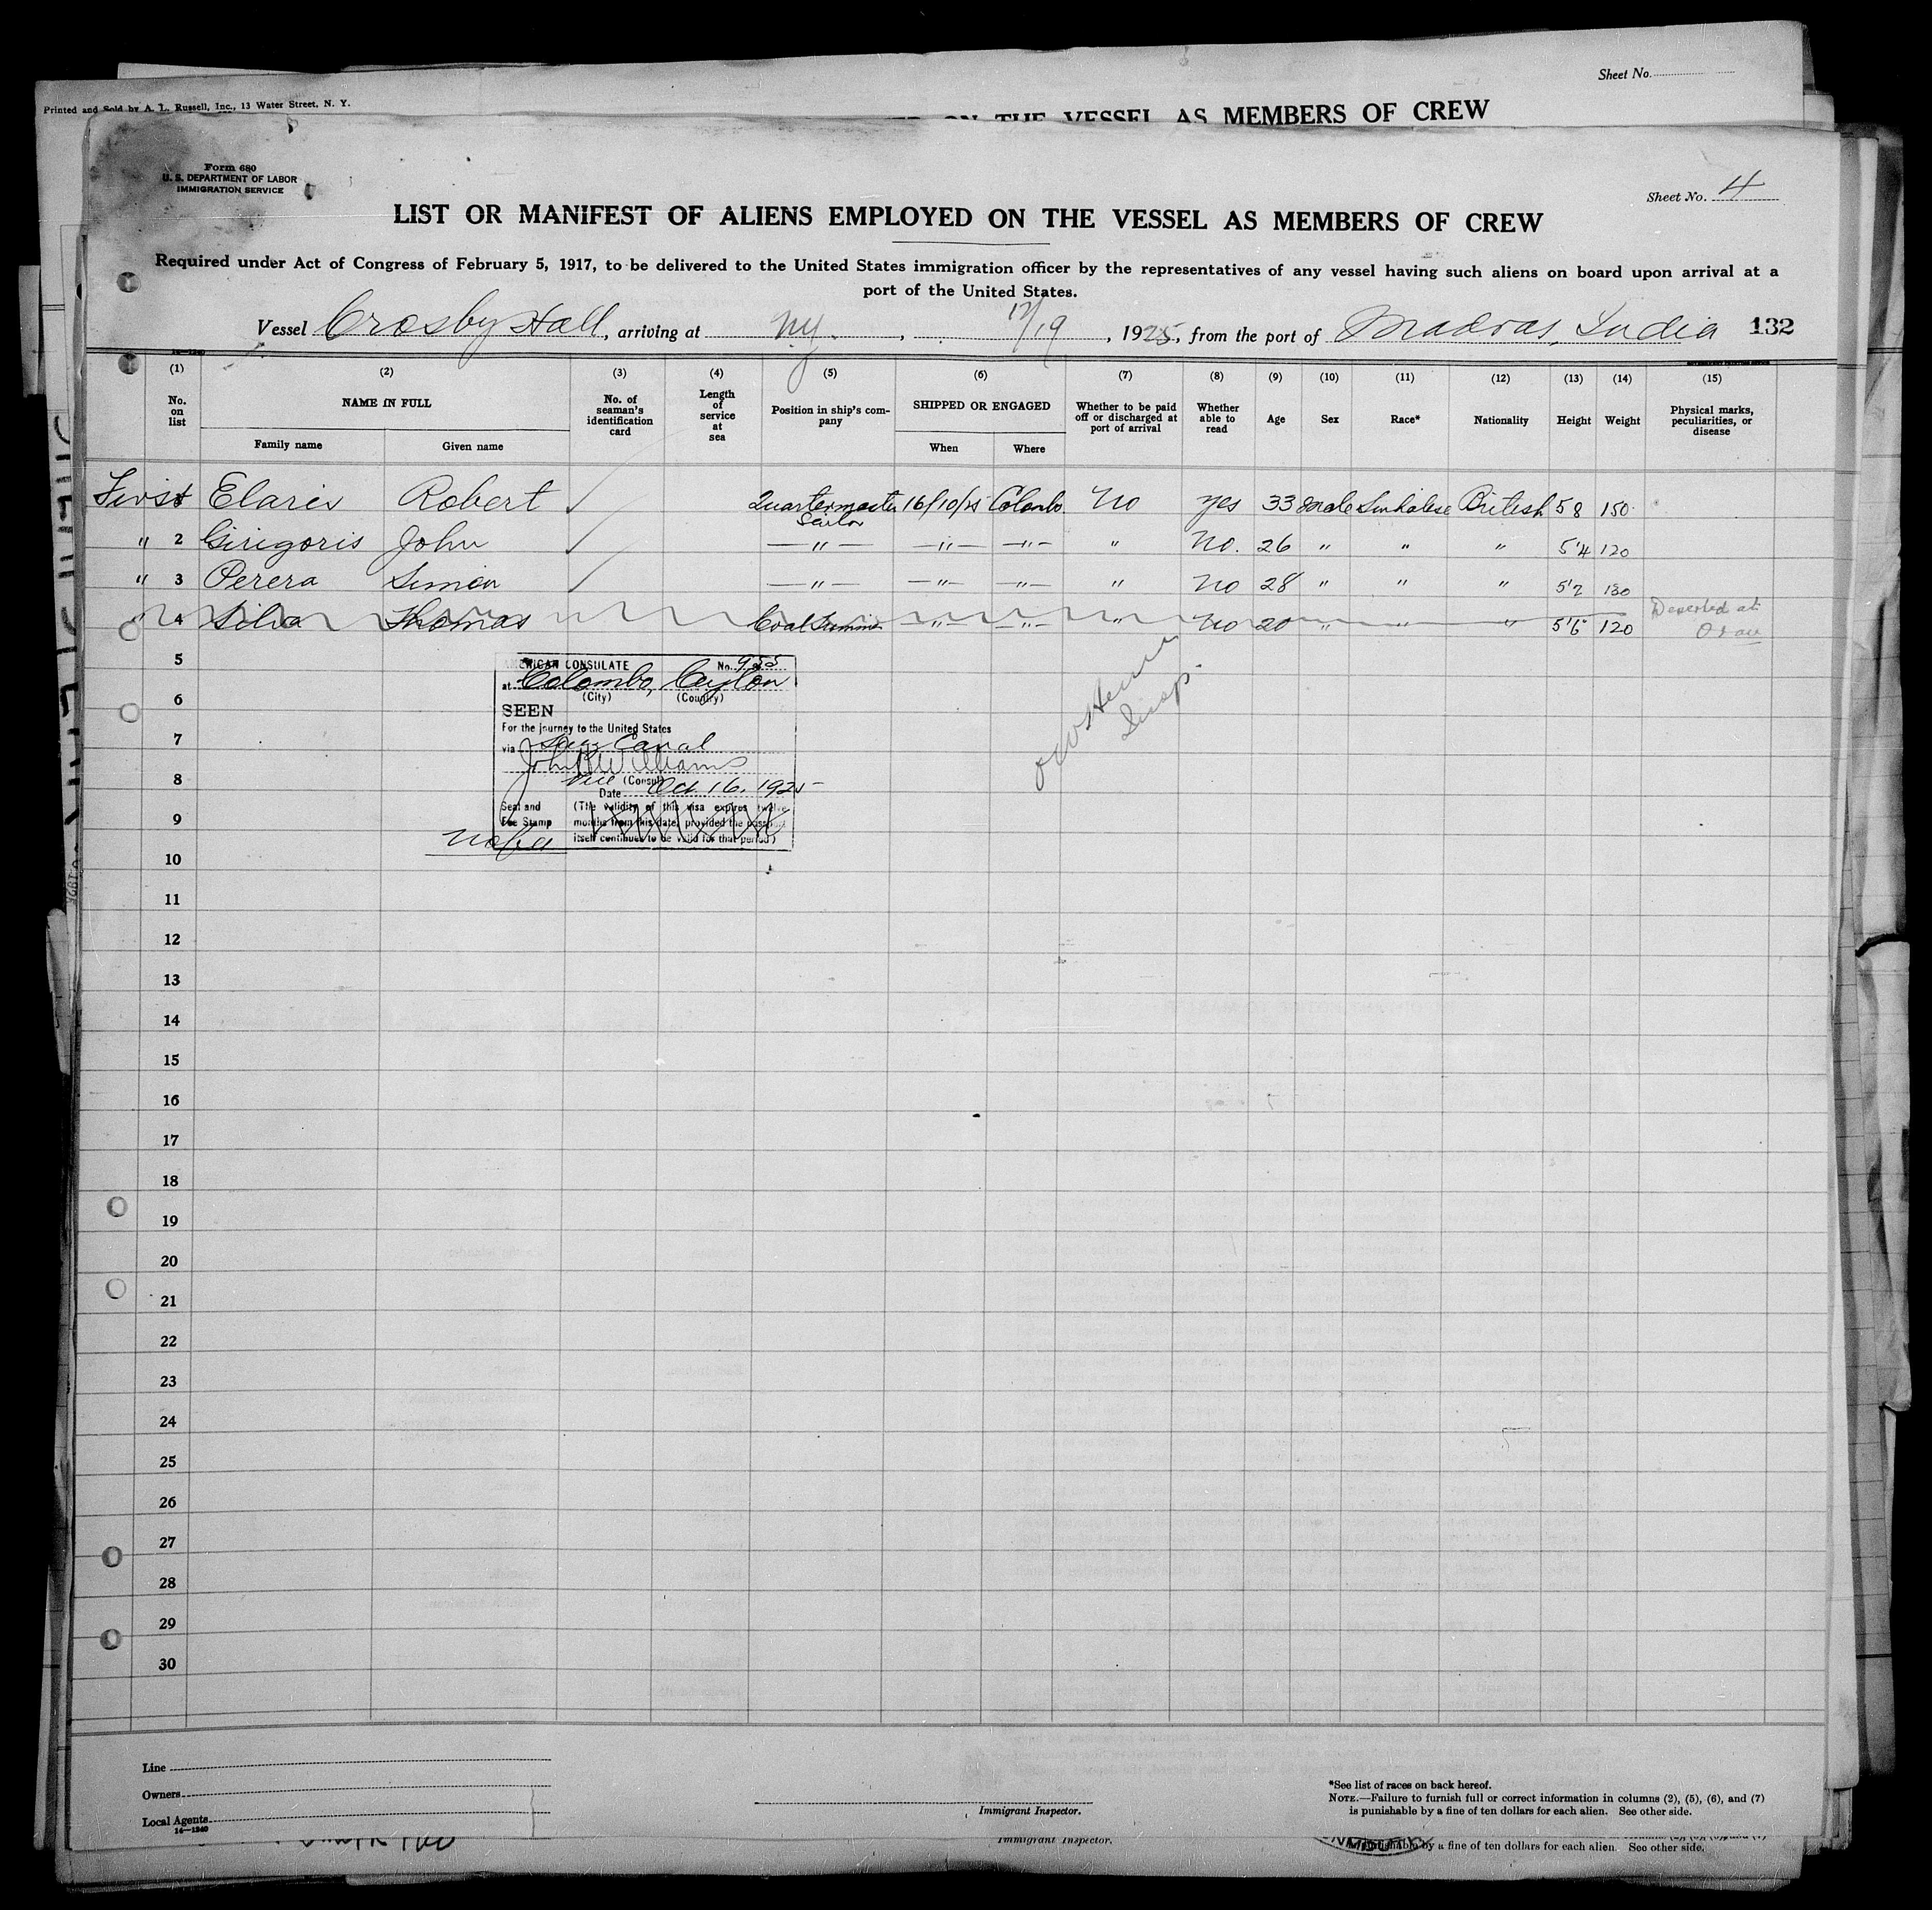 Sheet No.
Printed and Sold by A. L. Russell, Inc., 13 Water Street, N. Y.
ON THE VESSEL AS MEMBERS OF CREW
Form 680
U. S. DEPARTMENT OF LABOR
IMMIGRATION SERVICE
Sheet No. 4
LIST OR MANIFEST OF ALIENS EMPLOYED ON THE VESSEL AS MEMBERS OF CREW
Required under Act of Congress of February 5, 1917, to be delivered to the United States immigration officer by the representatives of any vessel having such aliens on board upon arrival at a
port of the United States.
Vessel Crosby Hall, arriving at NY, 12/19, 1925, from the port of Madras, India 132
(1) (2) (3) (4) (5) (6) (7) (8) (9) (10) (11) (12) (13) (14) (15)
No. on list NAME IN FULL No. of seaman's identification card Length of service at sea Position in ship's company SHIPPED OR ENGAGED Whether to be paid off or discharged at port of arrival Whether able to read Age Sex Race* Nationality Height Weight Physical marks, peculiarities, or disease
Family name Given name When Where
First Elaris Robert ✓ Quartermaster 16/10/25 Colombo No yes 33 male Sinhalese British 5 8 150
Sailor
" 2 Girigoris John ✓ —"— —"— —"— " No. 26 " " " 5'4 120
" 3 Perera Simon ✓ —"— —"— —"— " No 28 " " " 5'2 130
" 4 Silva Thomas Coal Trimmer —"— —"— " No 20 " " " 5'6" 120 Deserted at
Oran
5
AMERICAN CONSULATE No. 955
at Colombo, Ceylon
6
(City) (Country)
SEEN
For the journey to the United States
7
via Suez Canal
John B Williams
8
Vice (Consul)
Date Oct 16, 1925
Seal and Fee Stamp (The validity of this visa expires twelve
9
months from this date, provided the passport
itself continues to be valid for that period)
No fee
10
11
12
13
14
15
16
17
18
19
20
21
22
23
24
25
26
27
28
29
30
Line
Owners
Local Agents
14—1240
Immigrant Inspector.
*See list of races on back hereof.
NOTE.—Failure to furnish full or correct information in columns (2), (5), (6), and (7)
is punishable by a fine of ten dollars for each alien. See other side.
Immigrant Inspector.
by a fine of ten dollars for each alien. See other side.